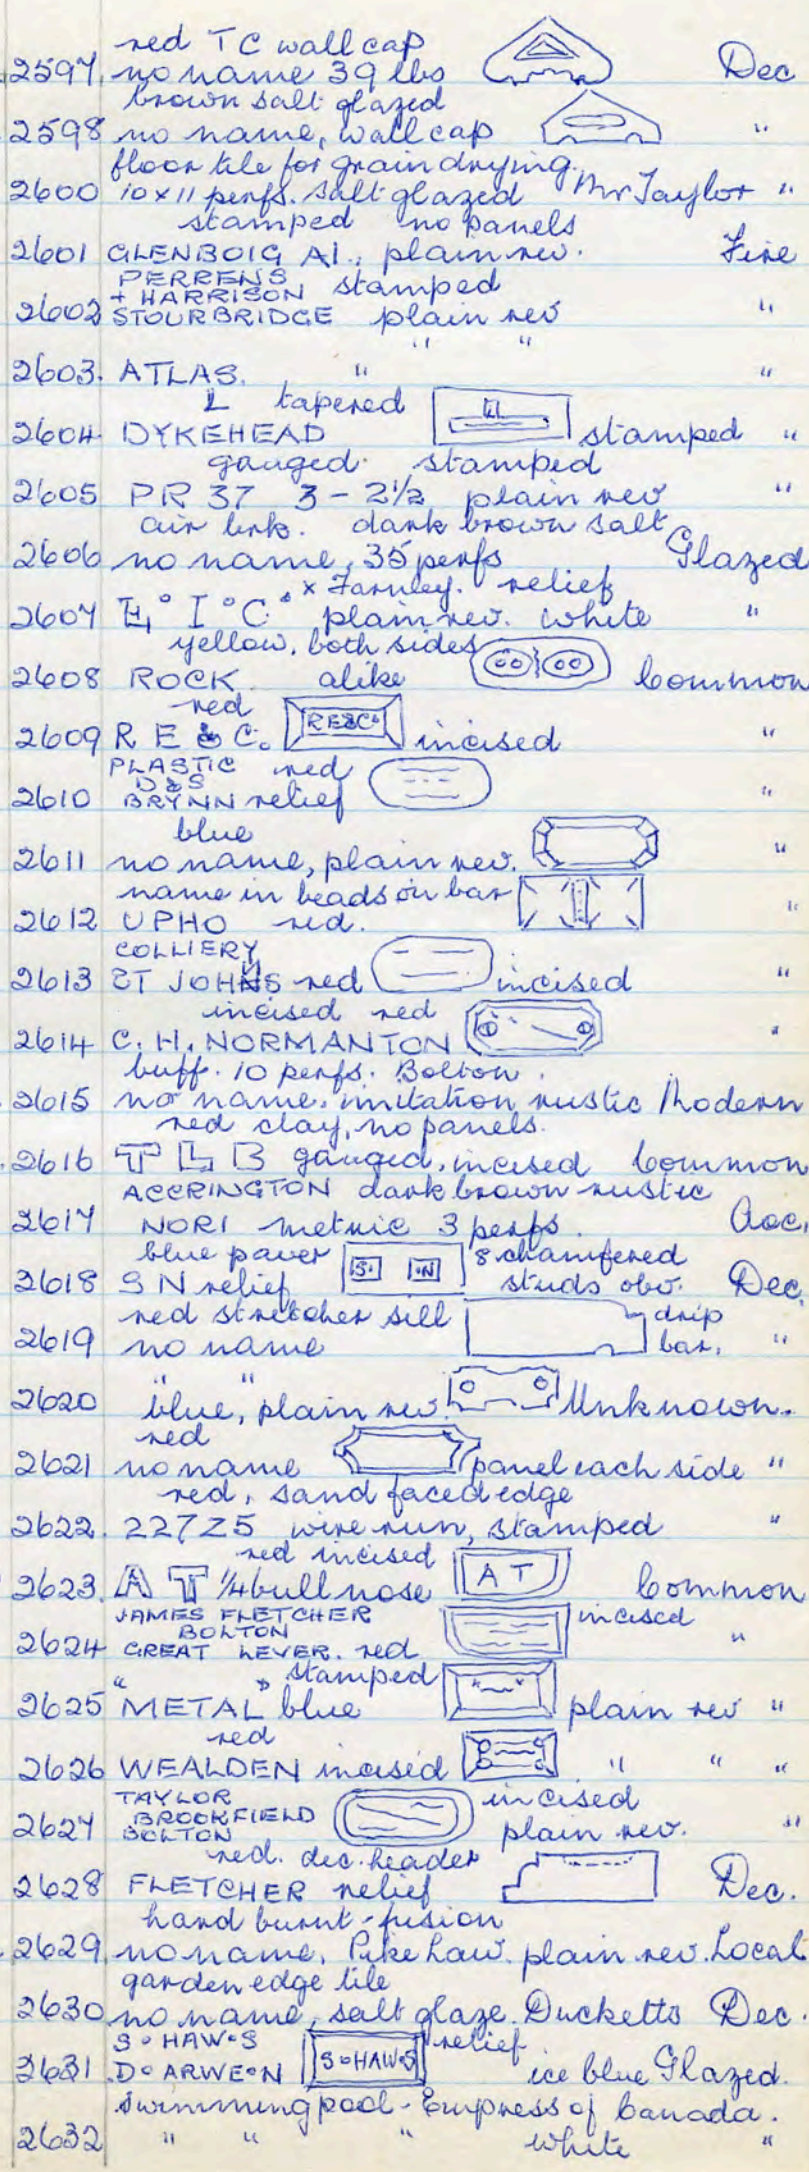 red TC wall cap
2597. no name 39 lbs Dec
brown salt glazed
2598 no name, wall cap "
floor tile for grain drying.
2600 10 x 11 perfs. salt glazed Mr Taylor "
stamped no panels
2601 GLENBOIG A1., plain rev. Fire
PERRENS
+ HARRISON stamped
2602 STOURBRIDGE plain rev "
" "
2603. ATLAS. " "
L tapered
2604 DYKEHEAD stamped "
gauged. stamped
2605 PR 37 3 - 2½ plain rev "
air brk. dark brown salt
2606 no name, 35 perfs Glazed
x Farnley. relief
2607 E° I° C° plain rev. white "
yellow, both sides
2608 ROCK alike Common
red
2609 R E & C. RE&Co incised "
PLASTIC red
D&S
2610 BRYNN relief "
blue
2611 no name, plain rev. "
name in beads on bar
2612 UPHO red. "
COLLIERY
2613 ST JOHNS red incised "
incised red
2614 C. H. NORMANTON "
buff. 10 perfs. Bolton.
2615 no name, imitation rustic Modern
red clay, no panels.
2616 T L B gauged, incised Common
ACCRINGTON dark brown rustic
2617 NORI metric 3 perfs. Acc.
blue paver S. .N 8 chamfered
2618 S N relief studs obv. Dec.
red stretcher sill drip
2619 no name bar. "
" "
2620 blue, plain rev. Unknown.
red
2621 no name panel each side "
red, sand faced edge
2622. 227Z5 wire run, stamped "
red incised
2623. A T ¼ bull nose A T Common
JAMES FLETCHER incised
BOLTON
2624 GREAT LEVER. red "
" " stamped
2625 METAL blue plain rev "
red
2626 WEALDEN incised " " "
TAYLOR incised
BROOKFIELD
2627 BOLTON plain rev. "
red. dec. header
2628 FLETCHER relief Dec.
hand burnt - fusion
2629 no name. Pike Law. plain rev. Local
garden edge tile
2630 no name, salt glaze. Ducketts Dec.
S ° HAW ° S relief
2631 D ° ARWE ° N S ° HAW ° S ice blue Glazed.
Swimming pool - Empress of Canada.
2632 " " " white "